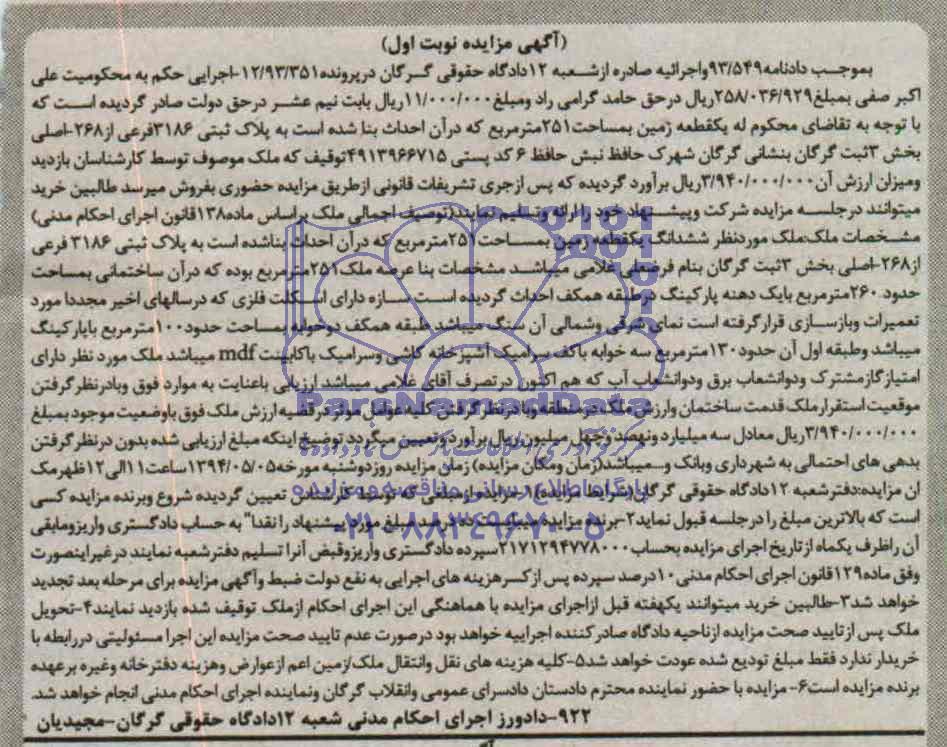 (آگهی مزایده نوبت اول)
بموجب دادنامه۹۳/۵۴۹واجرائیه صادره ازشعبه ۱۲دادگاه حقوقی گرگان درپرونده۱۲/۹۳/۳۵۱-اجرایی حکم به محکومیت علی
اکبر صفی بمبلغ۲۵۸/۰۳۶/۹۲۹ریال درحق حامد گرامی راد ومبلغ۱۱/۰۰۰/۰۰۰ریال بابت نیم عشر درحق دولت صادر گردیده است که
با توجه به تقاضای محکوم له یکقطعه زمین بمساحت۲۵۱مترمربع که درآن احداث بنا شده است به پلاک ثبتی ۳۱۸۶فرعی از۲۶۸-اصلی
بخش ۳ثبت گرگان بنشانی گرگان شهرک حافظ نبش حافظ ۶ کد پستی ۴۹۱۳۹۶۶۷۱۵توقیف که ملک موصوف توسط کارشناسان بازدید
ومیزان ارزش آن۳/۹۴۰/۰۰۰/۰۰۰ریال برآورد گردیده که پس ازجری تشریفات قانونی ازطریق مزایده حضوری بفروش میرسد طالبین خرید
میتوانند درجلسه مزایده شرکت وپیشنهاد خود را ارائه وتسلیم نمایند(توصیف اجمالی ملک براساس ماده۱۳۸قانون اجرای احکام مدنی)
مشخصات ملک:ملک موردنظر ششدانگ یکقطعه زمین بمساحت۲۵۱مترمربع که درآن احداث بناشده است به پلاک ثبتی ۳۱۸۶ فرعی
از۲۶۸-اصلی بخش ۳ثبت گرگان بنام فرضعلی غلامی میباشد مشخصات بنا عرصه ملک۲۵۱مترمربع بوده که درآن ساختمانی بمساحت
حدود ۲۶۰مترمربع بایک دهنه پارکینگ درطبقه همکف احداث گردیده است سازه دارای اسکلت فلزی که درسالهای اخیر مجددا مورد
تعمیرات وبازسازی قرارگرفته است نمای شرقی وشمالی آن سنگ میباشد طبقه همکف دوخوابه بمساحت حدود۱۰۰مترمربع باپارکینگ
میباشد وطبقه اول آن حدود۱۳۰مترمربع سه خوابه باکف سرامیک آشپزخانه کاشی وسرامیک باکابینت mdf میباشد ملک مورد نظر دارای
امتیازگازمشترک ودوانشعاب برق ودوانشعاب آب که هم اکنون درتصرف آقای غلامی میباشد ارزیابی باعنایت به موارد فوق وبادرنظرگرفتن
موقعیت استقرارملک قدمت ساختمان وارزش ملک درمنطقه وبا درنظرگرفتن کلیه عوامل موثر درقضیه ارزش ملک فوق باوضعیت موجود بمبلغ
۳/۹۴۰/۰۰۰/۰۰۰ریال معادل سه میلیارد ونهصد وچهل میلیون ریال برآورد وتعیین میگردد توضیح اینکه مبلغ ارزیابی شده بدون درنظرگرفتن
بدهی های احتمالی به شهرداری وبانک و...میباشد(زمان ومکان مزایده) زمان مزایده روزدوشنبه مورخه۱۳۹۴/۰۵/۰۵ ساعت۱۱الی۱۲ظهرمک
ان مزایده:دفترشعبه ۱۲دادگاه حقوقی گرگان(شرایط مزایده)۱-مزایده ازمبلغی که توسط کارشناس تعیین گردیده شروع وبرنده مزایده کسی
است که بالاترین مبلغ را درجلسه قبول نماید۲-برنده مزایده میبایست ده درصد مبلغ مورد پیشنهاد را نقدا" به حساب دادگستری واریزومابقی
آن راظرف یکماه ازتاریخ اجرای مزایده بحساب۲۱۷۱۲۹۴۷۷۸۰۰۰سپرده دادگستری واریزوقبض آنرا تسلیم دفترشعبه نمایند درغیراینصورت
وفق ماده۱۲۹قانون اجرای احکام مدنی۱۰درصد سپرده پس ازکسرهزینه های اجرایی به نفع دولت ضبط وآگهی مزایده برای مرحله بعد تجدید
خواهد شد۳-طالبین خرید میتوانند یکهفته قبل ازاجرای مزایده با هماهنگی این اجرای احکام ازملک توقیف شده بازدید نمایند۴-تحویل
ملک پس ازتایید صحت مزایده ازناحیه دادگاه صادرکننده اجراییه خواهد بود درصورت عدم تایید صحت مزایده این اجرا مسئولیتی دررابطه با
خریدار ندارد فقط مبلغ تودیع شده عودت خواهد شد۵-کلیه هزینه های نقل وانتقال ملک/زمین اعم ازعوارض وهزینه دفترخانه وغیره برعهده
برنده مزایده است۶- مزایده با حضور نماینده محترم دادستان دادسرای عمومی وانقلاب گرگان ونماینده اجرای احکام مدنی انجام خواهد شد.
۹۲۲-دادورز اجرای احکام مدنی شعبه ۱۲دادگاه حقوقی گرگان-مجیدیان
ParsNamadData
پایگاه اطلاع رسانی مناقصه و مزایده
۰۲۱-۸۸۳۴۹۶۷۰-۵